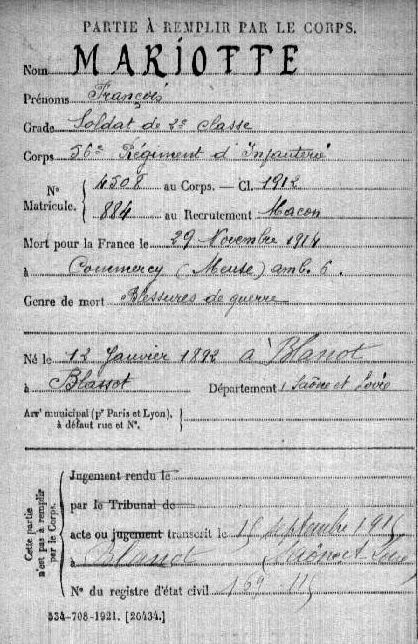 PARTIE À REMPLIR PAR LE CORPS.
Nom MARIOTTE
Prénoms François
Grade Soldat de 2e classe
Corps 56e Régiment d'Infanterie
N° Matricule. { 4508 au Corps. — Cl. 1912
884 au Recrutement Macon
Mort pour la France le 29 Novembre 1914
à Commercy (Meuse) amb. 6.
Genre de mort Blessures de guerre
Né le 12 Janvier 1892 à Blanot
à Blanot Département Saône et Loire
Arr^t municipal (p^r Paris et Lyon),
à défaut rue et N°.
Cette partie n'est pas à remplir par le Corps.
Jugement rendu le
par le Tribunal de
acte ou jugement transcrit le 15 septembre 1915
à Blanot (Saône et Loire)
N° du registre d'état civil
534-708-1921. [26434.]